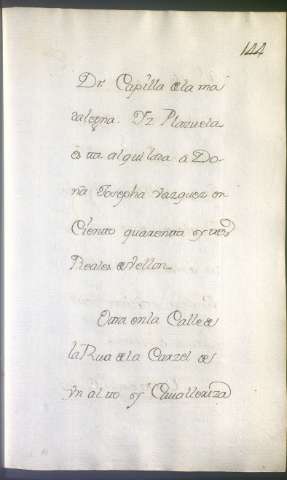 144
Dr. Capilla de la ma
Yz Plazuela
es ta alquilada a Do
ña Josepha Vazquez en
Ciento quarenta y tres
Reales de Vellon
Otra en la Calle de
la Rua de la Carzel de
Vn alto y Cavalleriza